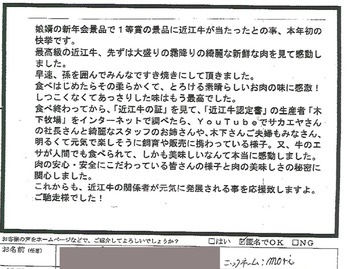 娘婿の新年会景品で1等賞の景品に近江牛が当たったとの事、本年初の
快挙です。
最高級の近江牛、先ずは大盛りの霜降りの綺麗な新鮮な肉を見て感動し
ました。
早速、孫を囲んでみんなですき焼きにして頂きました。
食べはじめたらその柔らかくて、とろける素晴らしいお肉の味に感激!
しつこくなくてあっさりした味はもう最高でした。
食べ終わってから、「近江牛の証」を見て、「近江牛認定書」の生産者「木
下牧場」をインターネットで調べたら、YouTubeでサカエヤさん
の社長さんと綺麗なスタッフのお姉さんや、木下さんご夫婦もみなさん、
明るくて元気で楽しそうに飼育や販売に携わっている様子。又、牛のエ
サが人間でも食べられて、しかも美味しいなんて本当に感動しました。
肉の安心・安全にこだわっている皆さんの様子と肉の美味しさの秘密に
関心しました。
これからも、近江牛の関係者が元気に発展される事を応援致しますよ。
ご馳走様でした!
お客様の声をホームページなどで、ご紹介してよろしいでしょうか? □はい ☑匿名でOK □NG
お名前
ニックネーム:mori